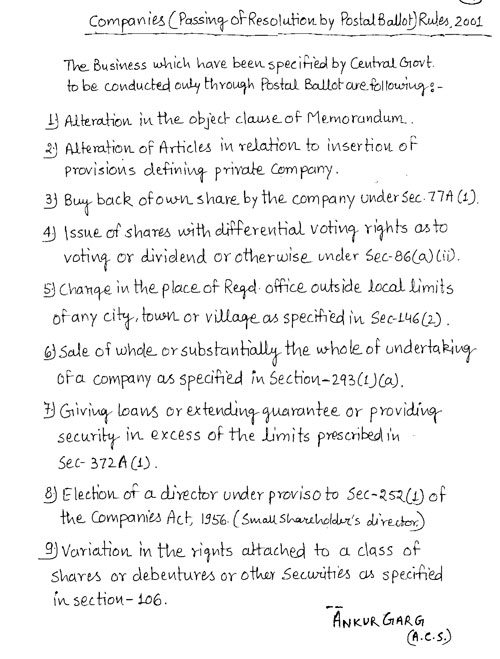 Companies (Passing of Resolution by Postal Ballot) Rules, 2001
The Business which have been specified by Central Govt.
to be conducted only through Postal Ballot are following:-
1) Alteration in the object clause of Memorandum.
2) Alteration of Articles in relation to insertion of
provisions defining private Company.
3) Buy back of own share by the company under Sec. 77A(1).
4) Issue of shares with differential voting rights as to
voting or dividend or otherwise under Sec-86(a)(ii).
5) Change in the place of Regd. office outside local limits
of any city, town or village as specified in Sec-146(2).
6) Sale of whole or substantially the whole of undertaking
of a company as specified in Section-293(1)(a).
7) Giving loans or extending guarantee or providing
security in excess of the limits prescribed in
Sec-372A(1).
8) Election of a director under proviso to Sec-252(1) of
the Companies Act, 1956. (Small Shareholder's director)
9) Variation in the rights attached to a class of
shares or debentures or other Securities as specified
in section-106.
ANKUR GARG
(A.C.S.)